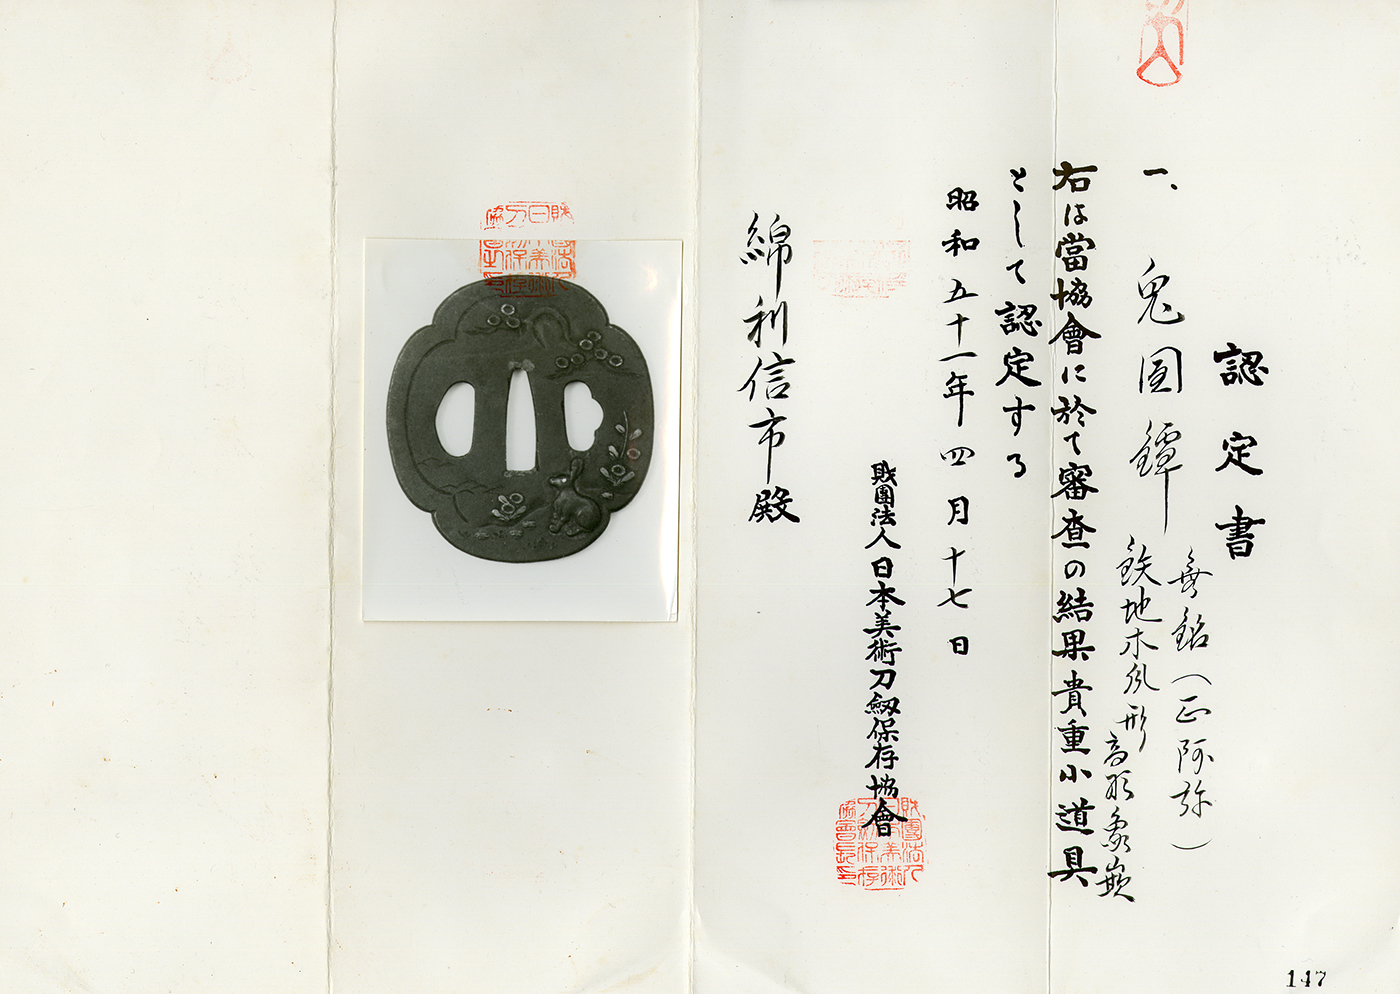 認定書
一、兎図鐔
無銘(正阿弥)
鉄地木瓜形高彫象嵌
右は當協會に於て審査の結果貴重小道具
として認定する
昭和五十一年四月十七日
財團法人日本美術刀劒保存協會
綿利信市殿
147